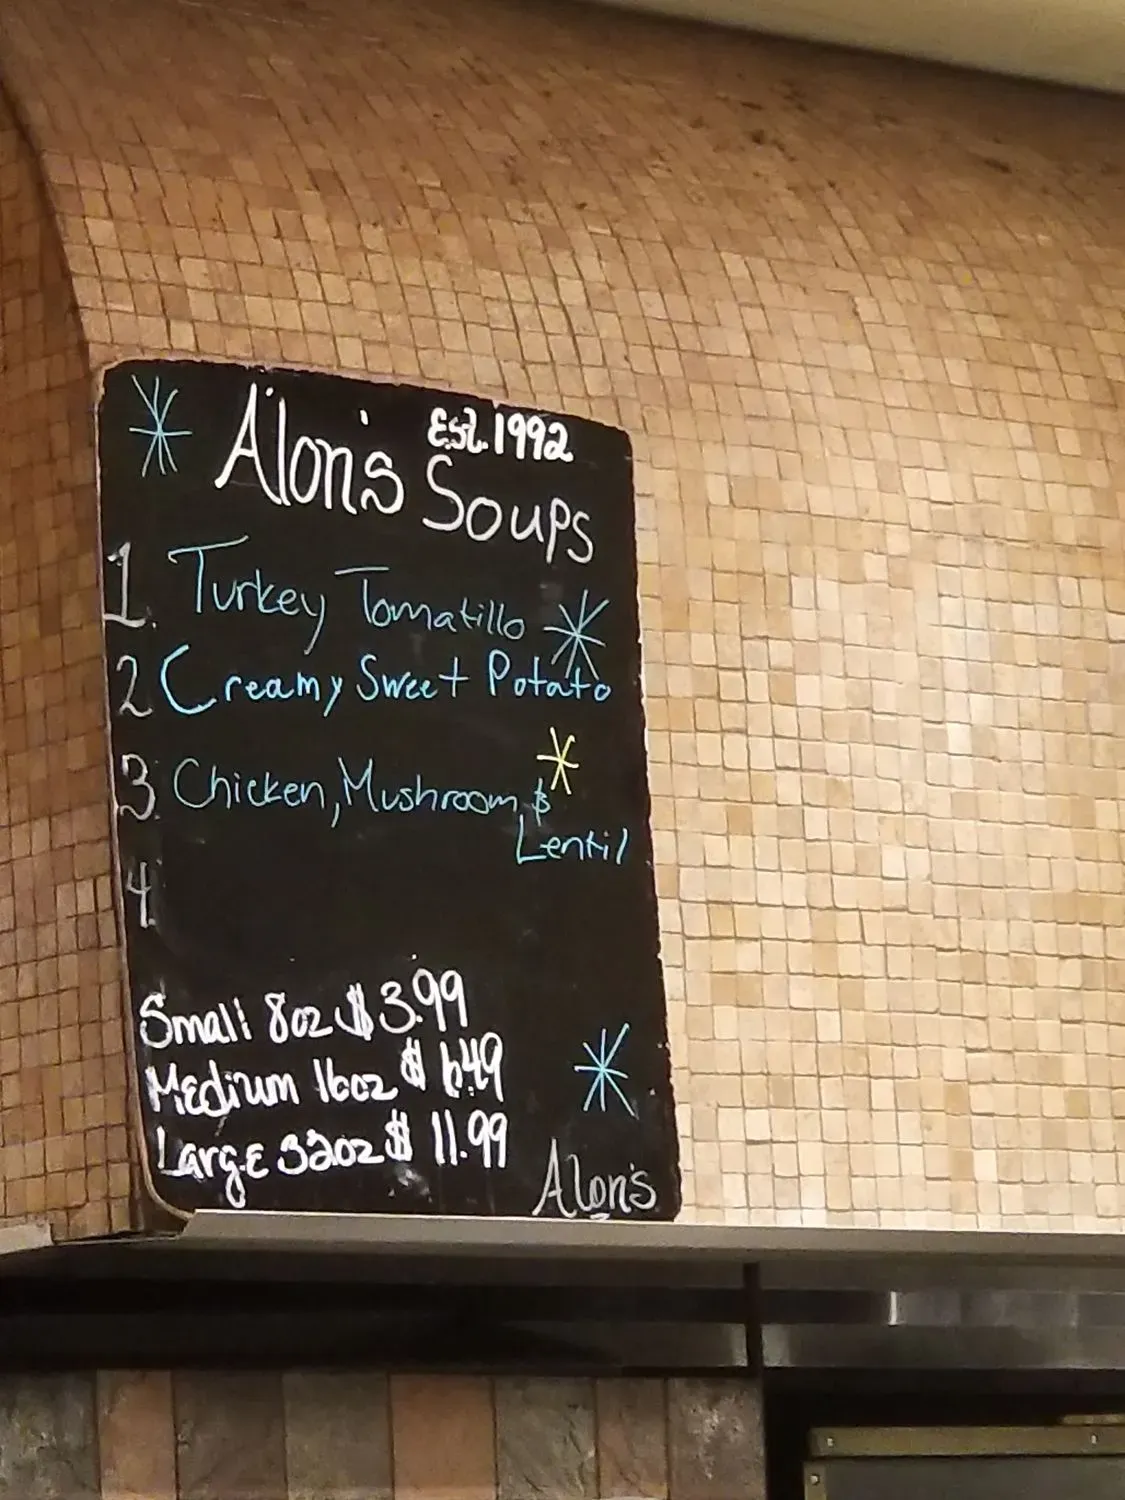 Alon's Est. 1992
Soups
1. Turkey Tomatillo
2 Creamy Sweet Potato
3. Chicken, Mushroom, &
Lentil
4.
Small 8oz $3.99
Medium 16oz $6.49
Large 32oz $11.99
Alon's